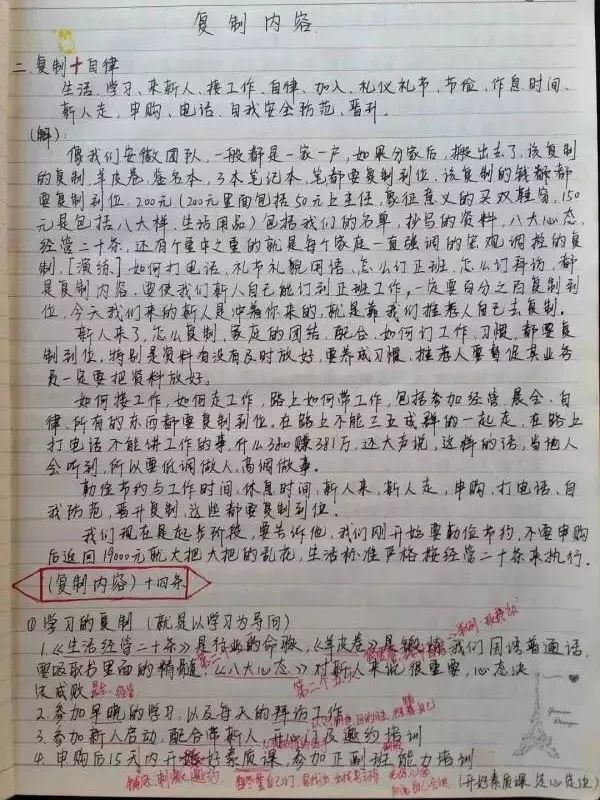 复制内容
二.复制十自律
生活、学习、来新人、接工作、自律、加入、礼仪礼节、节俭、作息时间、
新人走,申购、电话、自我安全防范、晋升.
(解):
像我们安徽团队,一般都是一家一户,如果分家后,搬出去了,该复制
的复制,羊皮卷,签名本,3本笔记本,笔都要复制到位.该复制的钱都都
要复制到位,200元(200元里面包括50元上主任,象征意义的买双鞋穿,150
元是包括八大样,生活用品)包括我们的名单,抄写的资料,八大心态,
经营二十条,还有个重中之重的就是每个家庭一直强调的宏观调控的复
制,[演练]如何打电话、礼节礼貌用语、怎么订正班,怎么订拜访,都
是复制内容.要使我们新人自己能订到正班工作,一定要百分之百复制到
位,今天我们来的新人是冲着你来的,就是靠我们推荐人自己去复制.
新人来了,怎么复制,家庭的团结,配合,如何订工作,习惯,都要复
制到位,特别是资料有没有及时放好,要养成习惯、推荐人要督促其业务
员一定要把资料放好.
如何接工作,如何走工作,路上如何带工作,包括参加经营、晨会、自
律、所有的东西都要复制到位,在路上不能三五成群的一起走,在路上
打电话不能讲工作的事,什么380赚381万,还大声说,这样的话,当地人
会听到,所以要低调做人,高调做事.
勤俭节约与工作时间、休息时间、新人来,新人走,申购、打电话、自
我防范,晋升复制,这些都要复制到位!
我们现在是起步阶段,要告诉他,我们刚开始要勤俭节约,不要申购
后返回19000元就大把大把的乱花,生活标准严格按经营二十条来执行.
(复制内容)十四条
①学习的复制(就是以学习为导向)
1.《生活经营二十条》是行业的命脉,《羊皮卷》是锻炼我们国语普通话,
要吸取书里面的精髓.《八大心态》对新人来说很重要,心态决
定成败
2.参加早晚的学习,以及每天的拜访工作
3.参加新人启动,配合带新人,开心门及邀约培训
4.申购后15天内开好素质课,参加正副班能力培训
(开好素质课